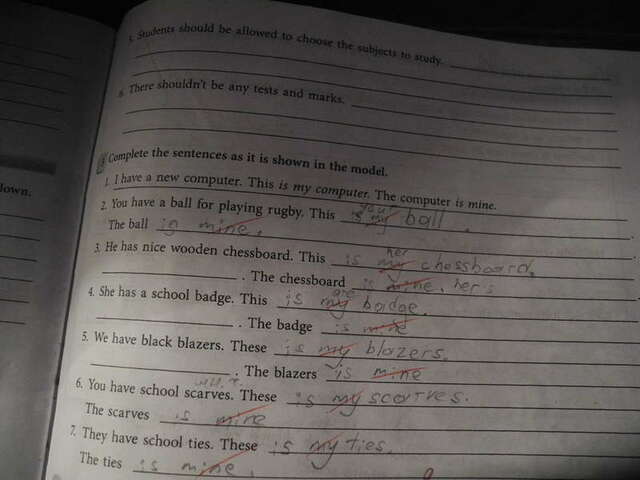 5. Students should be allowed to choose the subjects to study.
6. There shouldn't be any tests and marks.
Complete the sentences as it is shown in the model.
1. I have a new computer. This is my computer. The computer is mine.
2. You have a ball for playing rugby. This is my ball.
The ball is mine.
her
3. He has nice wooden chessboard. This is my chessboard.
. The chessboard is mine. hers
4. She has a school badge. This is my badge.
. The badge is mine
5. We have black blazers. These is my blazers.
. The blazers is mine
6. You have school scarves. These is my scarves.
The scarves is mine
7. They have school ties. These is my ties.
The ties is mine.